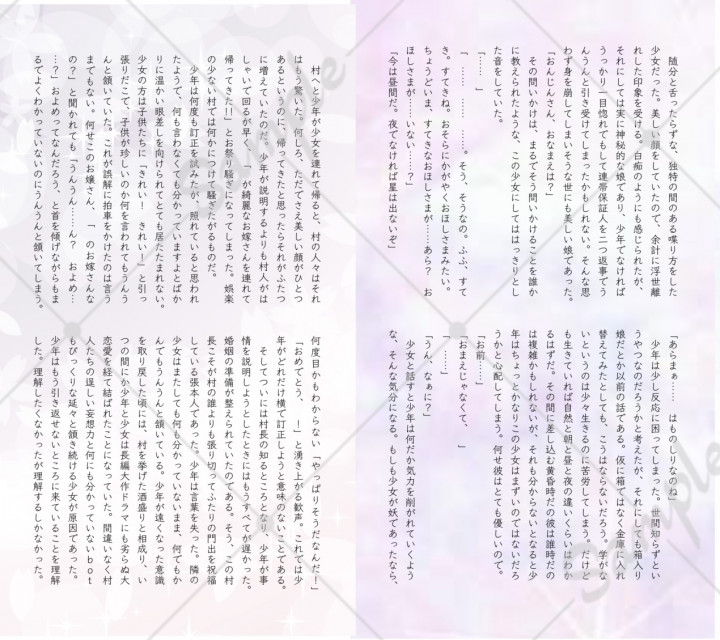 随分と舌ったらずな、独特の間のある喋り方をした
少女だった。美しい顔をしていたので、余計に浮世離
れした印象を受ける。白痴のようにも感じられたが、
それにしては実に神秘的な娘であり、少年でなければ
うっかり一目惚れでもして連帯保証人を二つ返事でう
んうんと引き受けてしまったかもしれない。そんな思
わず身を崩してしまいそうな世にも美しい娘であった。
「おんじんさん、おなまえは？」
　その問いかけは、まるでそう問いかけることを誰か
に教えられたような、この少女にしてははっきりとし
た音をしていた。
「……　」
「　……　……　……。そう、そうなの。ふふ、すて
き。すてきね。おそらにかがやくおほしさまみたい。
ちょうどいま、すてきなおほしさまが……あら？　お
ほしさまが……いない……？」
「今は昼間だ。夜でなければ星は出ないぞ」
「あらまぁ……　はものしりなのね」
　少年は少し反応に困ってしまった。世間知らずとい
うやつなのだろうかと考えたが、それにしても箱入り
娘だとか以前の話である。仮に箱ではなく金庫に入れ
替えてみたとしても、こうはならないだろう。学がな
いというのは少々生きるのに苦労してしまう。だけど
も生きていれば自然と朝と昼と夜の違いくらいはわか
るはずだ。その間に差し込む黄昏時だの彼は誰時だの
は複雑かもしれないが、それも分からないとなると少
年はちょっとかなりこの少女はまずいのではないだろ
うかと心配してしまう。何せ彼はとても優しいので。
「お前……」
「おまえじゃなくて、　」
「……　」
「うん、なぁに？」
　少女と話すと少年は何だか気力を削がれていくよう
な、そんな気分になる。もしも少女が妖であったなら、
　村へと少年が少女を連れて帰ると、村の人々はそれ
はもう驚いた。何しろ、ただでさえ美しい顔がひとつ
あるというのに、帰ってきたと思ったらそれがふたつ
に増えていたのだ。少年が説明するよりも村人がは
しゃいで回るが早く、「　が綺麗なお嫁さんを連れて
帰ってきた!!」とお祭り騒ぎになってしまった。娯楽
の少ない村では何かにつけて騒ぎたがるものだ。
　少年は何度も訂正を試みたが、照れていると思われ
たようで、何も言わなくても分かっていますよとばか
りに温かい眼差しを向けられてとても居たたまれない。
少女の方は子供たちに「きれい！　きれい！」と引っ
張りだこで、子供が珍しいのか何を言われてもうんう
んと頷いていた。これが誤解に拍車をかけたのは言う
までもない。何せこのお嬢さん、「　のお嫁さんな
の？」と聞かれても「うんうん……ん？　およめ…
…？」およめってなんだろう、と首を傾げながらもま
るでよくわかっていないのにうんうんと頷いてしまう。
何度目かもわからない「やっぱりそうなんだ！」
「おめでとう、　！」と湧き上がる歓声。これでは少
年がどれだけ横で訂正しようと意味のないことである。
　そしてついには村長の知るところとなり、少年が事
情を説明しようとしたときにはもうすべてが遅かった。
婚姻の準備が整えられていたのである。そう、この村
長こそが村の誰よりも張り切ってふたりの門出を祝福
している張本人であった。少年は言葉を失った。隣の
少女はまたしても何も分かっていないまま、何でもか
んでもうんうんと頷いている。少年が遠くなった意識
を取り戻した頃には、村を挙げた酒盛りと相成り、い
つの間にか少年と少女は長編大作ドラマにも劣らぬ大
恋愛を経て結ばれたことになっていた。間違いなく村
人たちの逞しい妄想力と何にも分かっていないｂｏｔ
もびっくりな延々と頷き続ける少女が原因であった。
　少年はもう引き返せないところに来ていることを理解
した。理解したくなかったが理解するしかなかった。
Sample
Sample